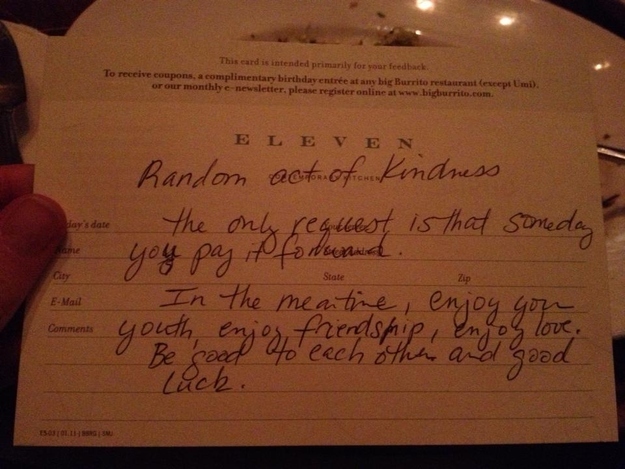 This card is intended primarily for your feedback.
To receive coupons, a complimentary birthday entrée at any big Burrito restaurant (except Umi),
or our monthly e-newsletter, please register online at www.bigburrito.com.
ELEVEN
CONTEMPORARY KITCHEN
Random act of Kindness
day's date
the only request is that someday
Name
you pay it forward.
City State Zip
E-Mail
In the meantime, enjoy your
Comments
youth, enjoy friendship, enjoy love.
Be good to each other and good
luck.